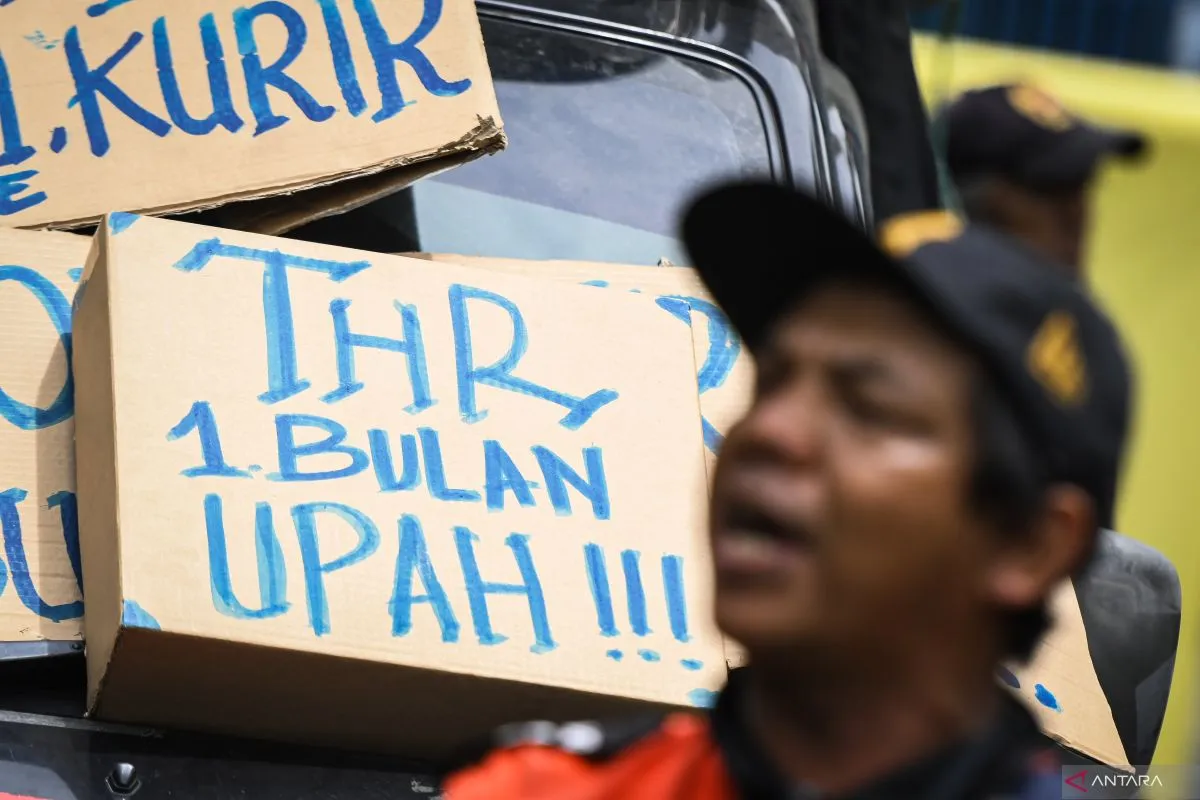 KURIR
THR
1 BULAN
UPAH !!!
ANTARA